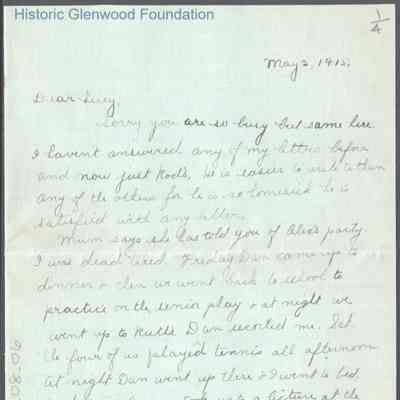 Historic Glenwood Foundation
1/4
May 2, 1915.
Dear Lucy,
Sorry you are so busy but same here.
I havent answered any of my letters before
and now just Rods, he is easier to write to than
any of the others for he is so homesick he is
satisfied with any letter.
Mum says she has told you of Alice's party.
I was dead tired. Friday Dan came up to
dinner & then we went back to school to
practice on the senior play & at night we
went up to Ruth's Dan escorted me. Sat.
the four of us played tennis all afternoon
at night Dan went up there & I went to bed,
to a lecture at the